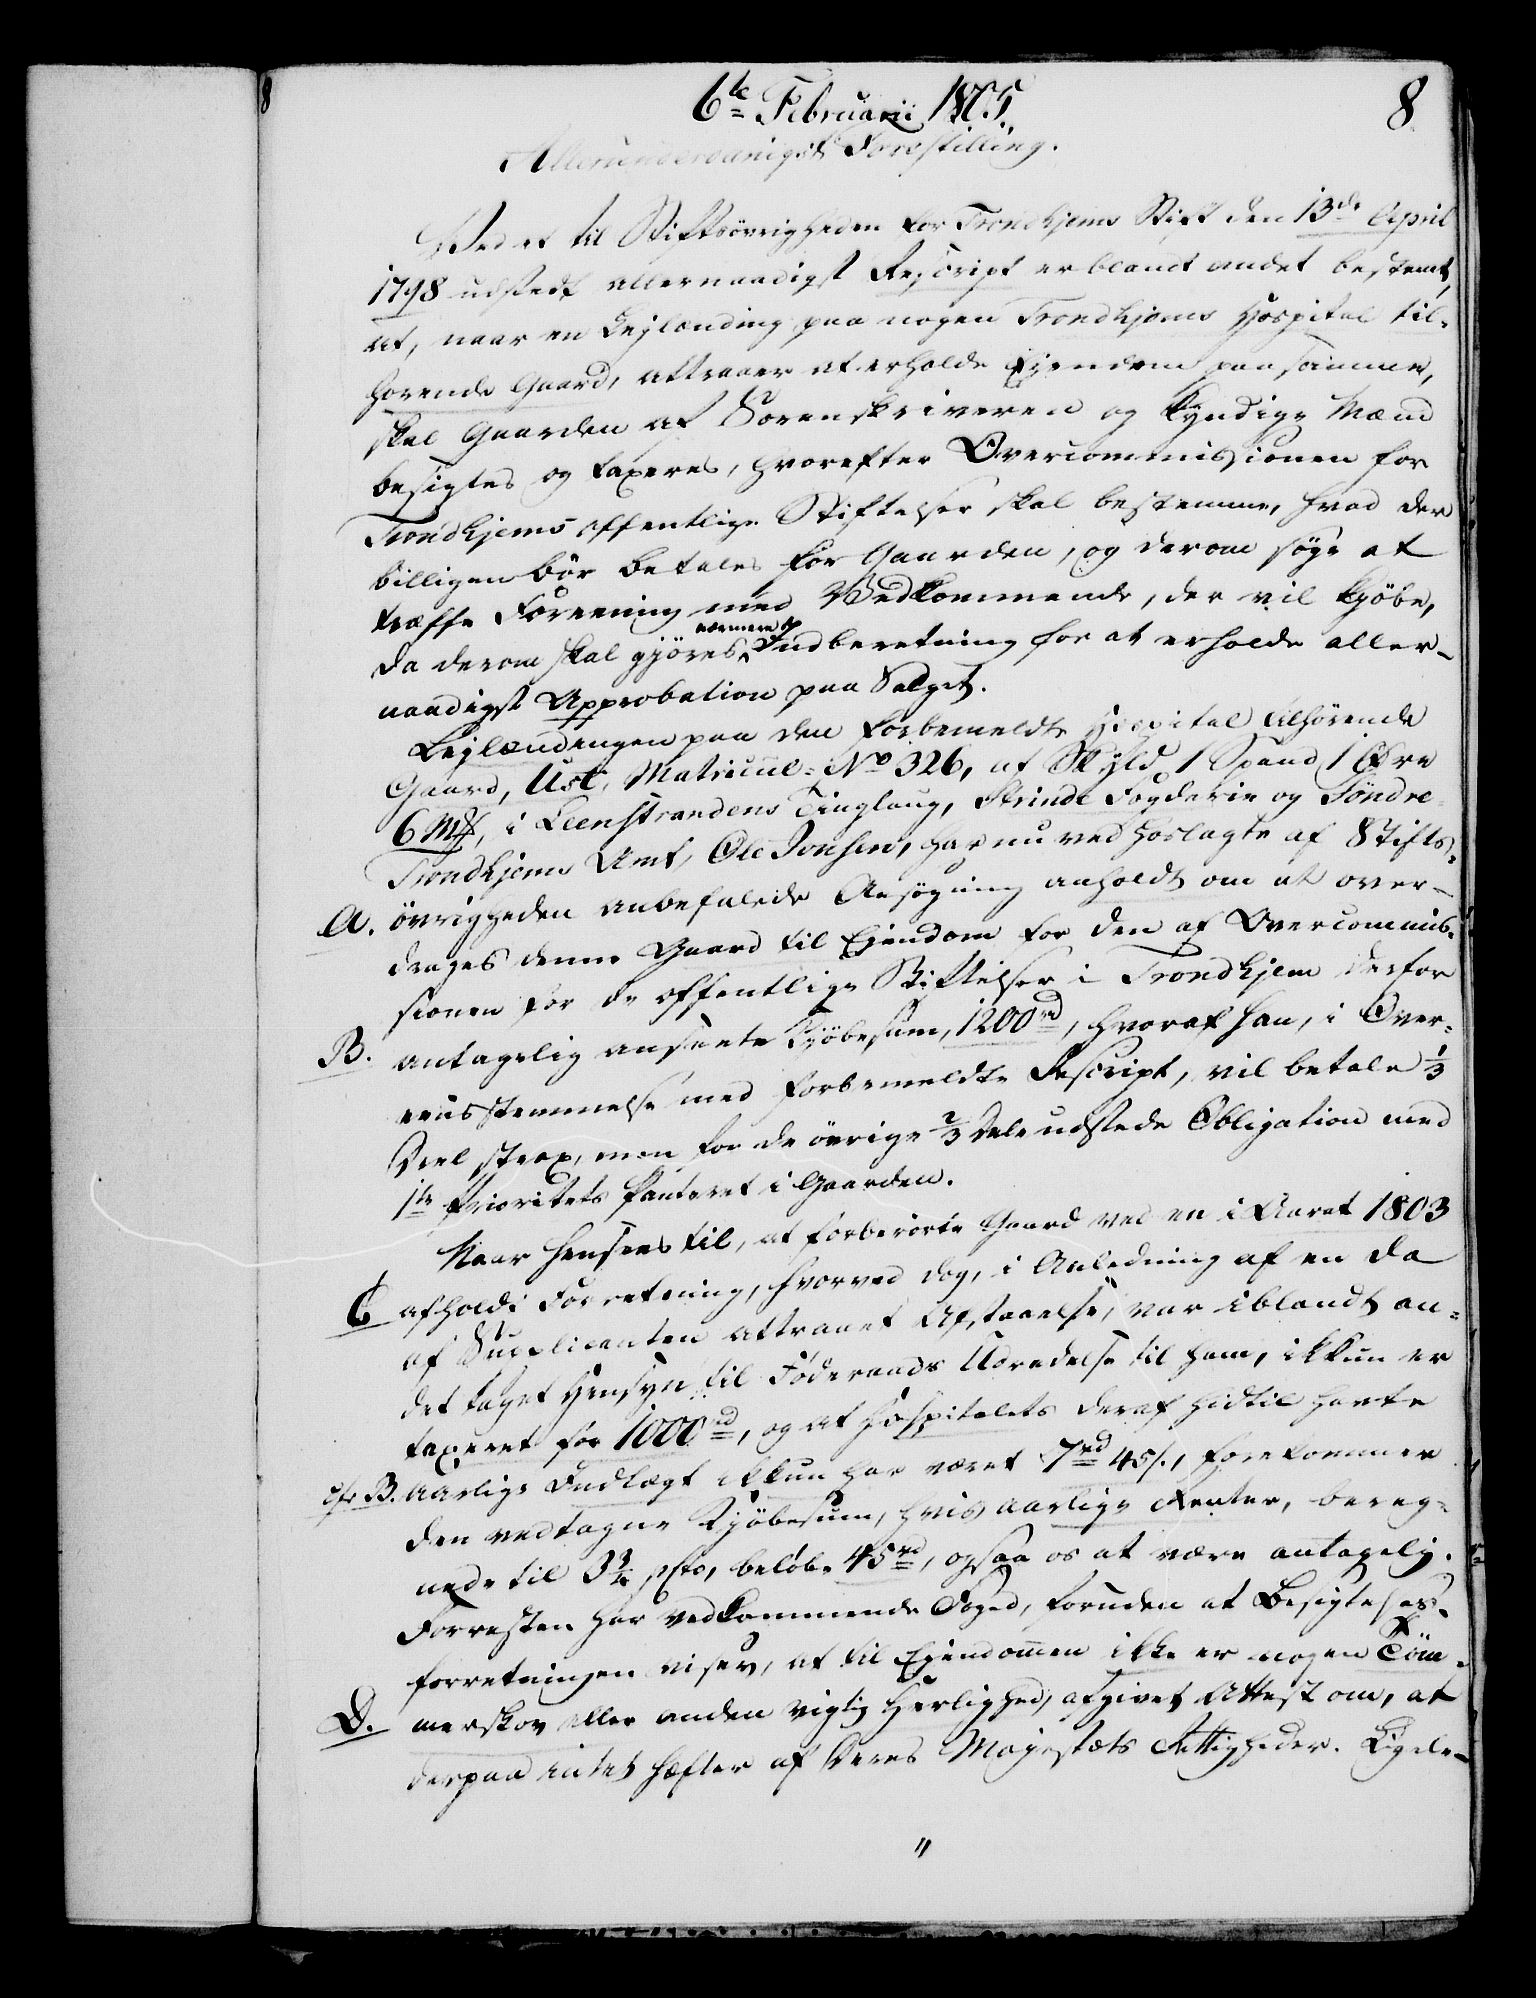 8
6te Februarii 1805.
8
Allerunderdanigst Forestilling.
Ved et til Stiftsövrigheden for Trondhjems Stift den 13de April
1798 udstedt allernaadigst Rescript er blandt andet bestemt,
at, naar en Leylænding paa nogen Trondhjems Hospital til-
hörende Gaard, attraaer at erholde Ejendom paa samme,
skal Gaarden af Sorenskriveren og kyndige Mænd
besigtes og taxeres, hvorefter Overcommissionen for
Trondhjems offentlige Stiftelser skal bestemme, hvad der
billigen bör betales for Gaarden, og derom söge at
træffe Foreening med Vedkommende, der vil kjöbe,
da derom skal gjöres nærmere Indberetning for at erholde aller-
naadigst Approbation paa Salget.
Leylændingen paa den forbemeldte Hospital tilhörende
Gaard, Ust, Matricul-No 326, af Skyld 1 Spand 1 Öre
6 Mk, i Leenstrandens Tinglaug, Strinde Fogderie og Söndre
Trondhjems Amt, Ole Jonsen, har nu ved hoslagte af Stifts-
A. övrigheden anbefalede Ansögning anholdt om at over-
drages denne Gaard til Ejendom for den af Overcommis-
sionen for de offentlige Stiftelser i Trondhjem derfor
B. antagelig ansaaete Kjöbesum, 1200 rd, hvoraf han, i Over-
eensstemmelse med forbemeldte Rescript, vil betale 1/3
Deel strax, men for de övrige 2/3 Dele udstede Obligation med
1te Prioritets Panteret i Gaarden.
Naar hensees til, at forberörte Gaard ved en i Aaret 1803
C afholdt Forretning, hvorved dog, i Anledning af en da
af Supplicanten attraaet Afstaaelse, var iblandt an-
det taget Hensyn til Föderaads Udredelse til ham, ikkun er
taxeret for 1000 rd, og at Hospitalets deraf hidtil havte
cfr B. aarlige Indtægt ikkun har været 7 rd 45 s., forekommer
den vedtagne Kjöbesum, hvis aarlige Renter, bereg-
nede til 3 3/4 pCto, belöbe 45 rd, ogsaa os at være antagelig.
Forresten har vedkommende Foged, foruden at Besigtelses-
forretningen viser, at til Ejendommen ikke er nogen Töm-
D. merskov eller anden vigtig Herlighed, afgivet Attest om, at
derpaa intet hæfter af Deres Majestæts Rettigheder. Ligele-
"